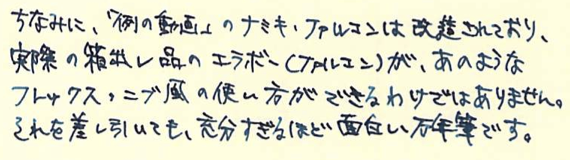 ちなみに、「例の動画」のナミキ・ファルコンは改造されており、
実際の箱出し品のエラボー(ファルコン)が、あのような
フレックス・ニブ風の使い方ができるわけではありません。
それを差し引いても、充分すぎるほど面白い万年筆です。